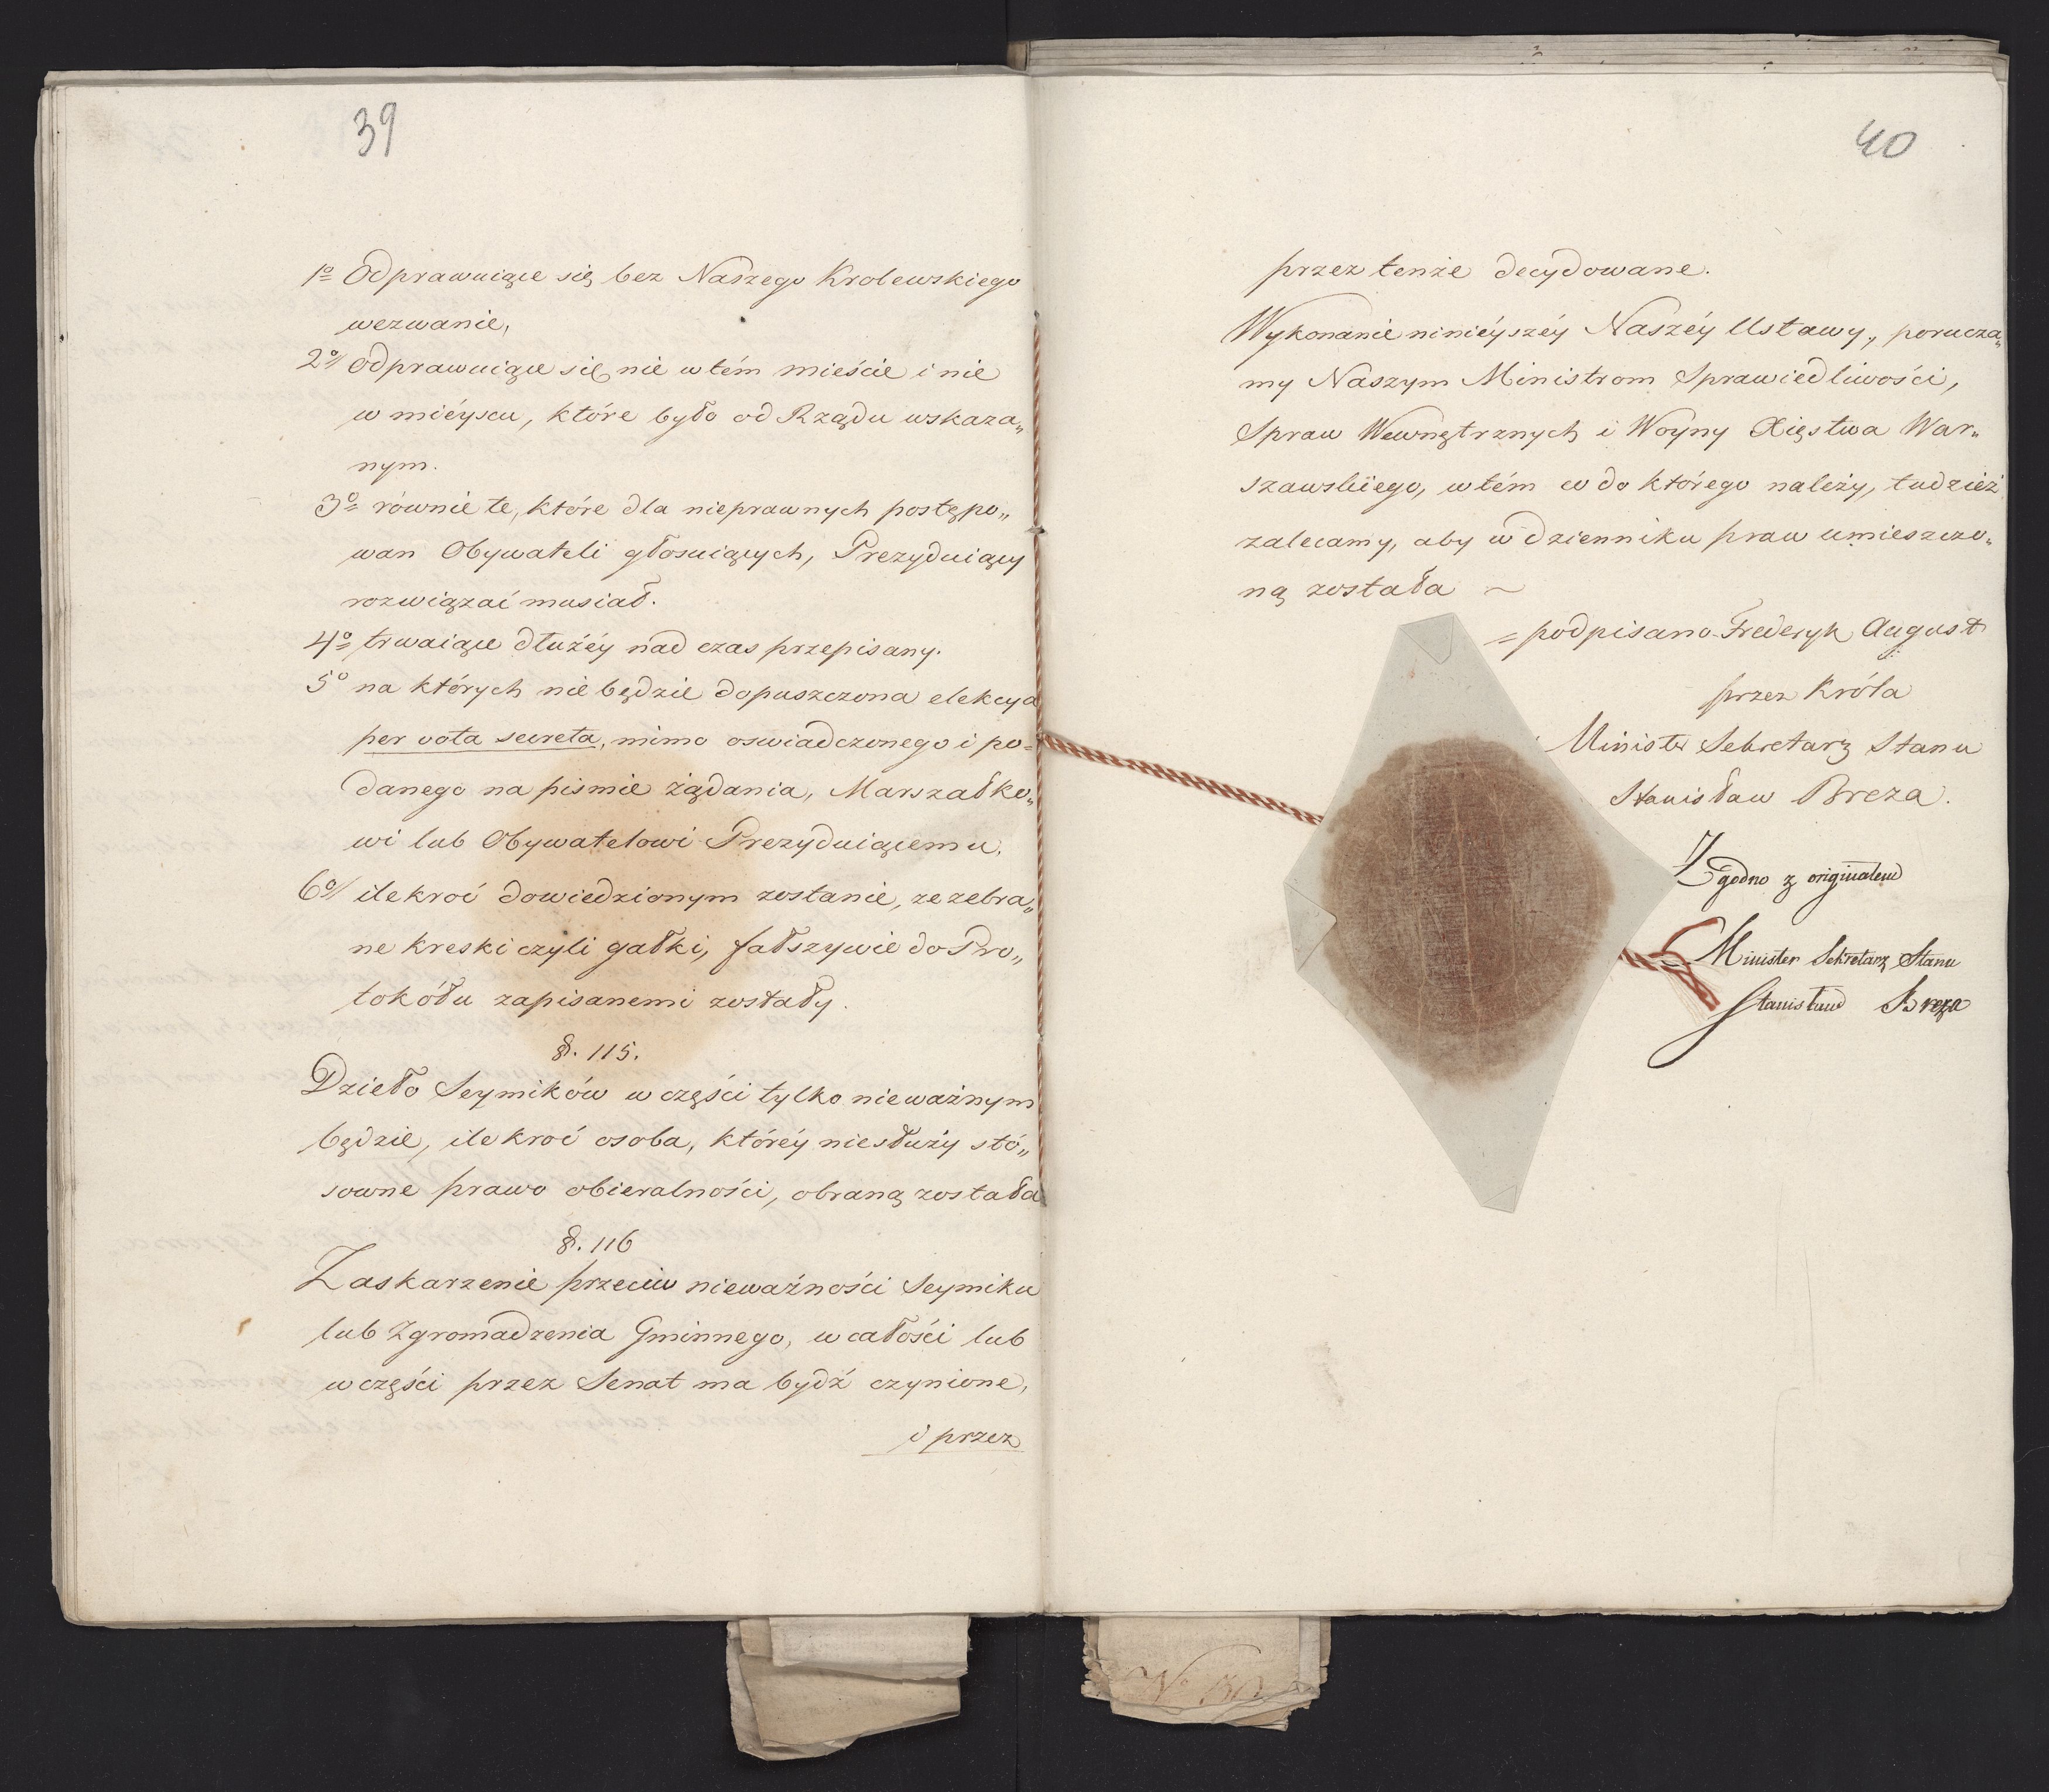 39
1º Odprawuiące się bez Naszego Krolewskiego
wezwanie,
2º/ odprawuiące się nie w tém mieście i nie
w miéyscu, które było od Rządu wskaza„
nym.
3º równie te, które dla nieprawnych postępo„
wan Obywateli głosuiących, Prezyduiący
rozwiązać musiał.
4º trwaiące dłużéy nad czas przepisany.
5º na których nie będzie dopuszczona elekcya
per vota secreta, mimo oswiadczonego i po=
danego na pismie żądania, Marszałko„
wi lub Obywatelowi Prezyduiącemu,
6º/ ilekroć dowiedzionym zostanie, ze zebra„
ne kreski czyli gałki, fałszywie do Pro„
tokółu zapisanemi zostały.
§. 115.
Dzieło Seymików w części tylko nieważnym
będzie, ilekroć osoba, któréy niesłuży stó„
sowne prawo obieralności, obraną została
§. 116
Zaskarzenie przeciw nieważności Seymiku
lub Zgromadzenia Gminnego, w całości lub
w części przez Senat ma bydź czynione,
i przez
40
przez tenże decydowane.
Wykonanie ninieyszéy Naszéy Ustawy, porucza„
my Naszym Ministrom Sprawiedliwości,
Spraw Wewnętrznych i Woyny Xięstwa War„
szawskiego, w tém co do którego należy, tudzież
zalecamy, aby w dzienniku praw umieszczo„
ną została ~
= podpisano Frederyk August
przez Króla
Minister Sekretarz Stanu
Stanisław Breza.
Zgodno z originalem
Minister Sekretarz Stanu
Stanisław Breza